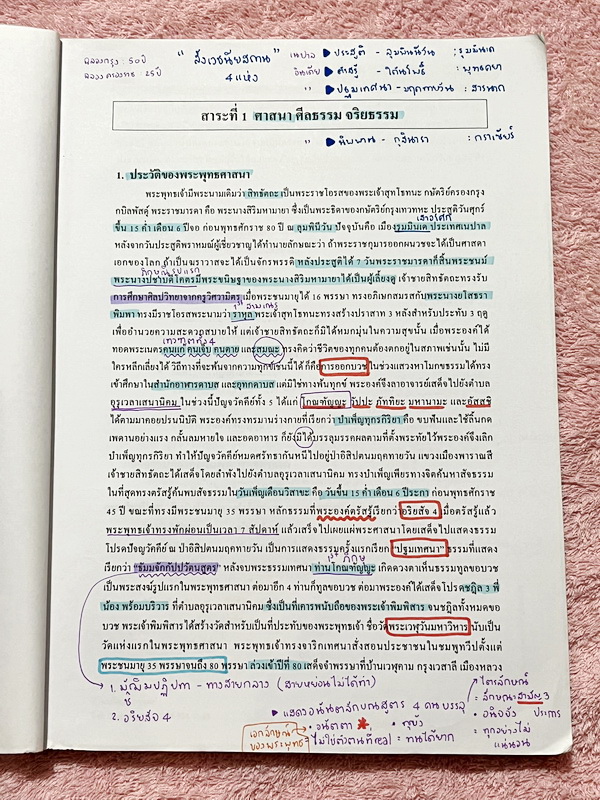 ฉลองกรุง : 50ปี
"สังเวชนียสถาน" เนปาล ▶ ประสูติ - ลุมพินีวัน : รุมมินเด
4 แห่ง อินเดีย ▶ ตรัสรู้ - ใต้ต้นโพธิ์ : พุทธคยา
25ปี " ▶ ปฐมเทศนา - มฤคทายวัน : สารนาถ
สาระที่ 1 ศาสนา ศีลธรรม จริยธรรม
" ▶ นิพพาน - กุสินารา :
1. ประวัติของพระพุทธศาสนา
พระพุทธเจ้ามีพระนามเดิมว่า สิทธัตถะ เป็นพระราชโอรสของพระเจ้าสุทโธทนะ กษัตริย์ครองกรุง
กบิลพัสดุ์ พระราชมารดา คือ พระนางสิริมหามายา ซึ่งเป็นพระธิดาของกษัตริย์กรุงเทวทหะ ประสูติวันศุกร์
ขึ้น 15 ค่ำ เดือน 6 ปีจอ ก่อนพุทธศักราช 80 ปี ณ ลุมพินีวัน ปัจจุบันคือ เมืองรุมมินเด ประเทศเนปาล
หลังจากวันประสูติพราหมณ์ผู้เชี่ยวชาญได้ทำนายลักษณะว่า ถ้าพระราชกุมารออกผนวชจะได้เป็นศาสดา
เอกของโลก ถ้าเป็นฆราวาสจะได้เป็นจักรพรรดิ หลังประสูติได้ 7 วันพระราชมารดาก็สิ้นพระชนม์
พระนางปชาบดีโคตรมีพระขนิษฐาของพระนางสิริมหามายาได้เป็นผู้เลี้ยงดู เจ้าชายสิทธัตถะทรงรับ
การศึกษาศิลปวิทยาจากครูวิศวามิตร เมื่อพระชนมายุได้ 16 พรรษา ทรงอภิเษกสมรสกับพระนางยโสธรา
พิมพา ทรงมีราชโอรสพระนามว่า ราหุล พระเจ้าสุทโธทนะทรงสร้างปราสาท 3 หลังสำหรับประทับ 3 ฤดู
เพื่ออำนวยความสะดวกสบายให้ แต่เจ้าชายสิทธัตถะก็มิได้หมกมุ่นในความสุขนั้น เมื่อพระองค์ได้
เทวทูตทั้ง 4
ทอดพระเนตรคนแก่ คนเจ็บ คนตาย และสมณะ ทรงคิดว่าชีวิตของทุกคนต้องตกอยู่ในสภาพเช่นนั้น ไม่มี
ใครหลีกเลี่ยงได้ วิธีทางที่จะพ้นจากความทุกข์เช่นนี้ได้ก็คือการออกบวช ในช่วงแสวงหาโมกขธรรมได้ทรง
เข้าศึกษาในสำนักอาฬารดาบส และอุทกดาบส แต่มิใช่ทางพ้นทุกข์ พระองค์จึงลาอาจารย์เสด็จไปยังตำบล
อุรุเวลาเสนานิคม ในช่วงนี้ปัญจวัคคีย์ทั้ง 5 ได้แก่ โกณฑัญญะ วัปปะ ภัททิยะ มหานามะ และอัสสชิ
ได้ตามมาคอยปรนนิบัติ พระองค์ทรงทรมานร่างกายที่เรียกว่า บำเพ็ญทุกรกิริยา คือ ขบฟันและใช้ลิ้นกด
เพดานอย่างแรง กลั้นลมหายใจ และอดอาหาร ก็ยังมิได้บรรลุมรรคผลตามที่ตั้งพระทัยไว้พระองค์จึงเลิก
บำเพ็ญทุกรกิริยา ทำให้ปัญจวัคคีย์หมดศรัทธากันหนีไปอยู่ป่าอิสิปตนมฤคทายวัน แขวงเมืองพาราณสี
เจ้าชายสิทธัตถะได้เสด็จโดยลำพังไปยังตำบลอุรุเวลาเสนานิคม ทรงบำเพ็ญเพียรทางจิตค้นหาสัจธรรม
ในที่สุดทรงตรัสรู้ค้นพบสัจธรรมในวันเพ็ญเดือนวิสาขะ คือ วันขึ้น 15 ค่ำ เดือน 6 ปีระกา ก่อนพุทธศักราช
45 ปี ขณะที่ทรงมีพระชนมายุ 35 พรรษา หลักธรรมที่พระองค์ตรัสรู้เรียกว่า อริยสัจ 4 เมื่อตรัสรู้แล้ว
พระพุทธเจ้าทรงพักผ่อนเป็นเวลา 7 สัปดาห์ แล้วเสด็จไปเผยแผ่พระศาสนาโดยเสด็จไปแสดงธรรม
โปรดปัญจวัคคีย์ ณ ป่าอิสิปตนมฤคทายวัน เป็นการแสดงธรรมครั้งแรกเรียก "ปฐมเทศนา" ธรรมที่แสดง
เรียกว่า "ธัมมจักกัปปวัตนสูตร" หลังจบพระธรรมเทศนา ท่านโกณฑัญญะ เกิดดวงตาเห็นธรรมทูลขอบวช
เป็นพระสงฆ์รูปแรกในพระพุทธศาสนา ต่อมาอีก 4 ท่านก็ทูลขอบวช ต่อมาพระองค์ได้เสด็จโปรดชฎิล 3 พี่
น้อง พร้อมบริวาร ที่ตำบลอุรุเวลาเสนานิคม ซึ่งเป็นที่เคารพนับถือของพระเจ้าพิมพิสาร จนชฎิลทั้งหมดขอ
บวช พระเจ้าพิมพิสารได้สร้างวัดสำหรับเป็นที่ประทับของพระพุทธเจ้า ชื่อวัดพระเวฬุวันมหาวิหาร นับเป็น
วัดแห่งแรกในพระพุทธศาสนา พระพุทธเจ้าทรงจาริกเทศนาสั่งสอนประชาชนในชมพูทวีปตั้งแต่
พระชนมายุ 35 พรรษาจนถึง 80 พรรษา ล่วงเข้าปีที่ 80 เสด็จจำพรรษาที่บ้านเวฬุคาม กรุงเวสาลี เมืองหลวง
1. มัชฌิมปฏิปทา - ทางสายกลาง (สายหย่อนไม่ได้ทำ)
2. อริยสัจ 4
▶ แสดงอนันตลักขณสูตร 4 คนบรรลุ
ไตรลักษณ์
ลักษณะสามัญ 3
ประการ
เอกลักษณ์
ของพระพุทธ
• อนัตตา
ไม่ใช่ตัวตนที่real
• ทุกขัง
= ทนได้ยาก
• อนิจจัง
= ทุกอย่างไม่
แน่นอน